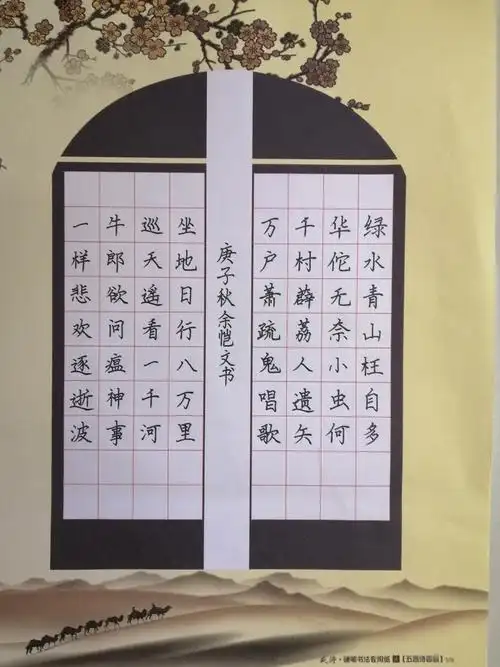 绿水青山枉自多
华佗无奈小虫何
千村薜荔人遗矢
万户萧疏鬼唱歌
庚子秋余恺文书
坐地日行八万里
巡天遥看一千河
牛郎欲问瘟神事
一样悲欢逐逝波
硬笔书法专用纸